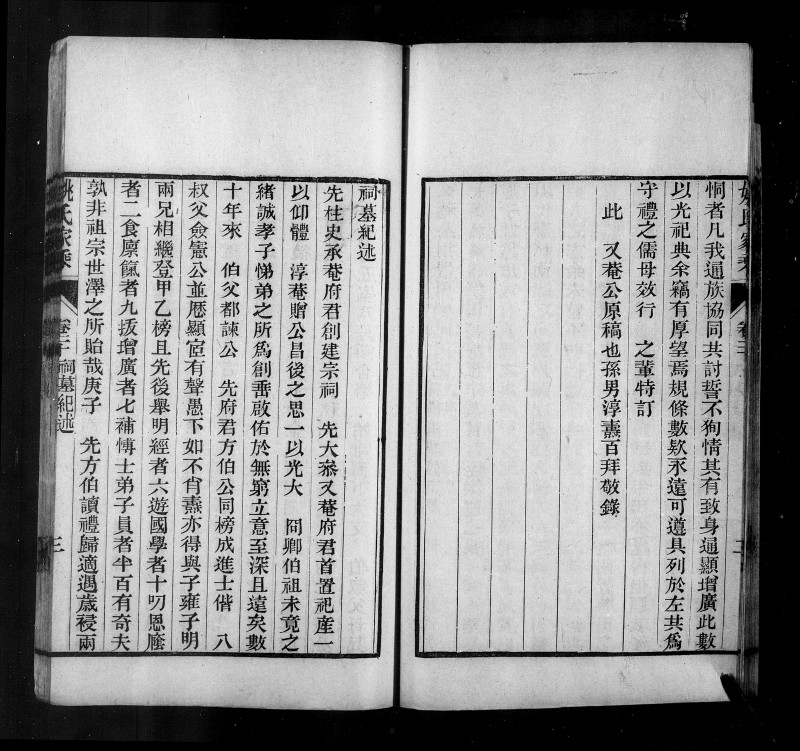 姚氏家乘
卷二
二
恫者凡我通族協同共討誓不狥情其有致身通顯增廣此數
以光祀典余竊有厚望焉規條數欵永遠可遵具列於左其為
守禮之儒毋效行 之輩特訂
此 又菴公原稿也孫男淳燾百拜敬錄
祠墓紀述
先柱史承菴府君創建宗祠 先大叅又菴府君首置祀產一
以仰體 淳菴贈公昌後之思一以光大 冏卿伯祖未竟之
緒誠孝子悌弟之所爲創垂啟佑於無窮立意至深且遠矣數
十年來 伯父都諫公 先府君方伯公同榜成進士偕 八
叔父僉憲公並歷顯宦有聲愚下如不肖燾亦得與子雍子明
兩兄相繼登甲乙榜且先後舉明經者六遊國學者十叨恩廕
者二食廩餼者九拔增廣者七補博士弟子員者半百有奇夫
孰非祖宗世澤之所貽哉庚子 先方伯讀禮歸適遇歲祲兩
姚氏家乘
卷二 祠墓紀述
三